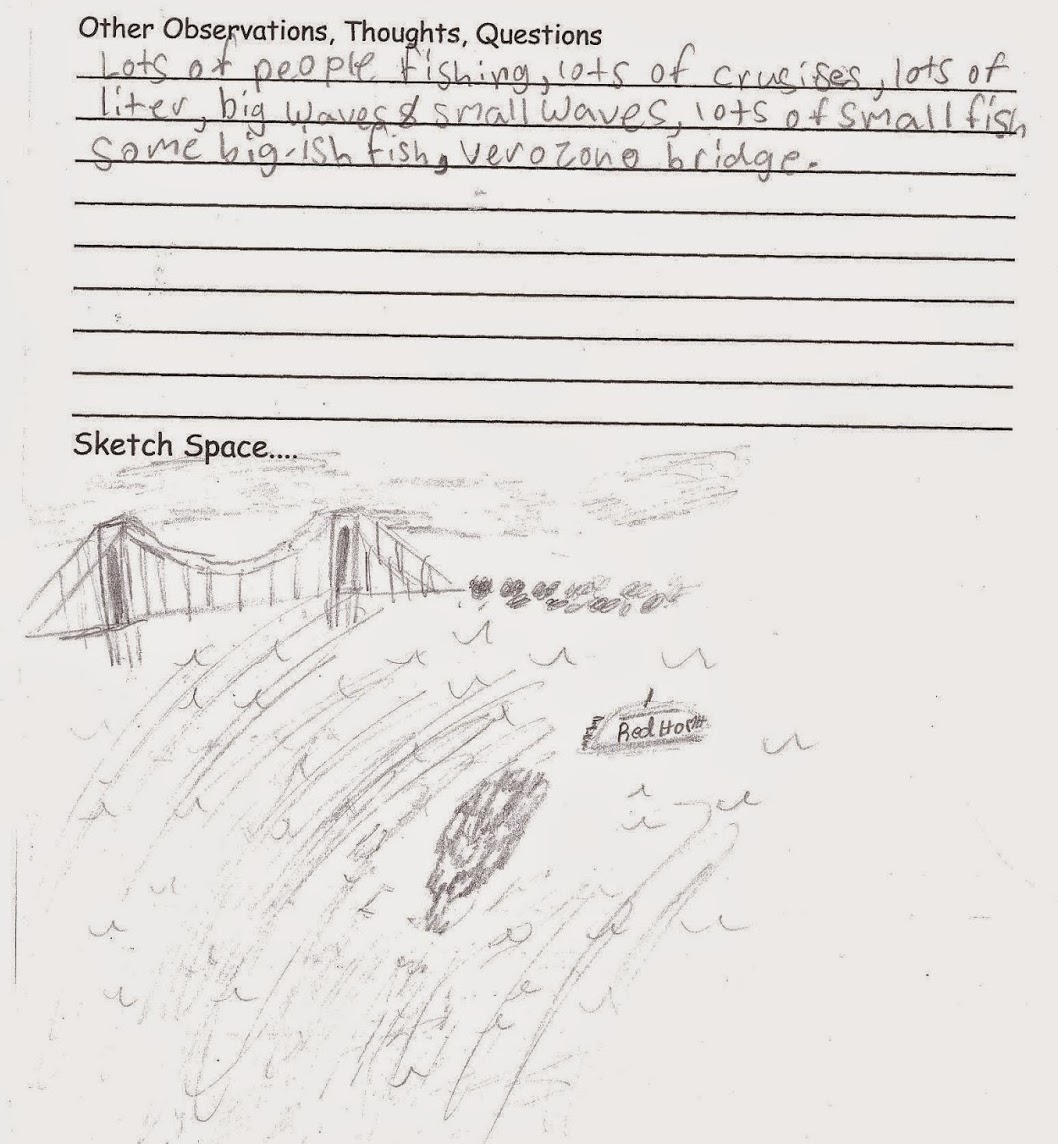 Other Observations, Thoughts, Questions
Lots of people fishing, lots of crusises, lots of
liter, big waves & small waves, lots of small fish
some big-ish fish, verozono bridge.
Sketch Space....
Red